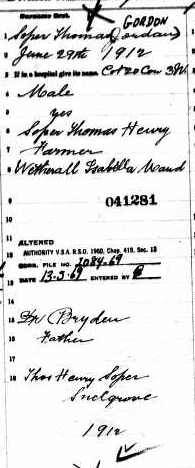 Surname first.
X GORDON
1 Soper Thomas (Jordan)
2 June 29th, 1912
3 If in a hospital give its name. Cot 20 Con 3
4 Male
5 yes
6 Soper Thomas Henry
7 Farmer
8 Wetherall Isabella Maud
9 041281
10
11 ALTERED
12 AUTHORITY V.S.A. R.S.O. 1960, Chap. 419, Sec. 13
CORR. FILE NO. 1084-69
13 DATE 13-5-69 ENTERED BY
14
15 Dr Bryden
16 Father
17
18 Thos Henry Soper
Snelgrove
1912